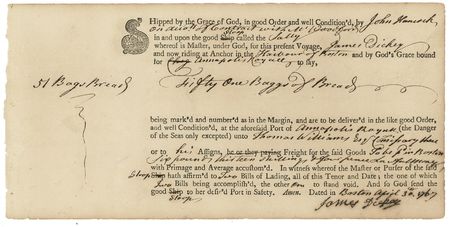 SHipped by the Grace of God, in good Order and well Condition'd, by John Hancock
on of Contract with Mr
in and upon the good Ship Sloop called the Sally
whereof is Master, under God, for this present Voyage, James Dickey
and now riding at Anchor in the Harbour of Boston and by God's Grace bound
for Annapolis Royall to say,
51 Bags Bread Fifty One Baggs of Bread
being mark'd and number'd as in the Margin, and are to be deliver'd in the like good Order,
and well Condition'd, at the aforesaid Port of Annapolis Royall (the Danger
of the Seas only excepted) unto Thomas Williams Esq
or to his Assigns, he or they paying Freight for the said Goods To be p'd in Boston
Six pounds thirteen shillings
with Primage and Average accustom'd. In witness whereof the Master or Purser of the said
Sloop Ship hath affirm'd to Two Bills of Lading, all of this Tenor and Date; the one of which
Two Bills being accomplish'd, the other to stand void. And so God send the
good Ship Sloop to her desir'd Port in Safety. Amen. Dated in Boston April 30. 1767
James Dickey